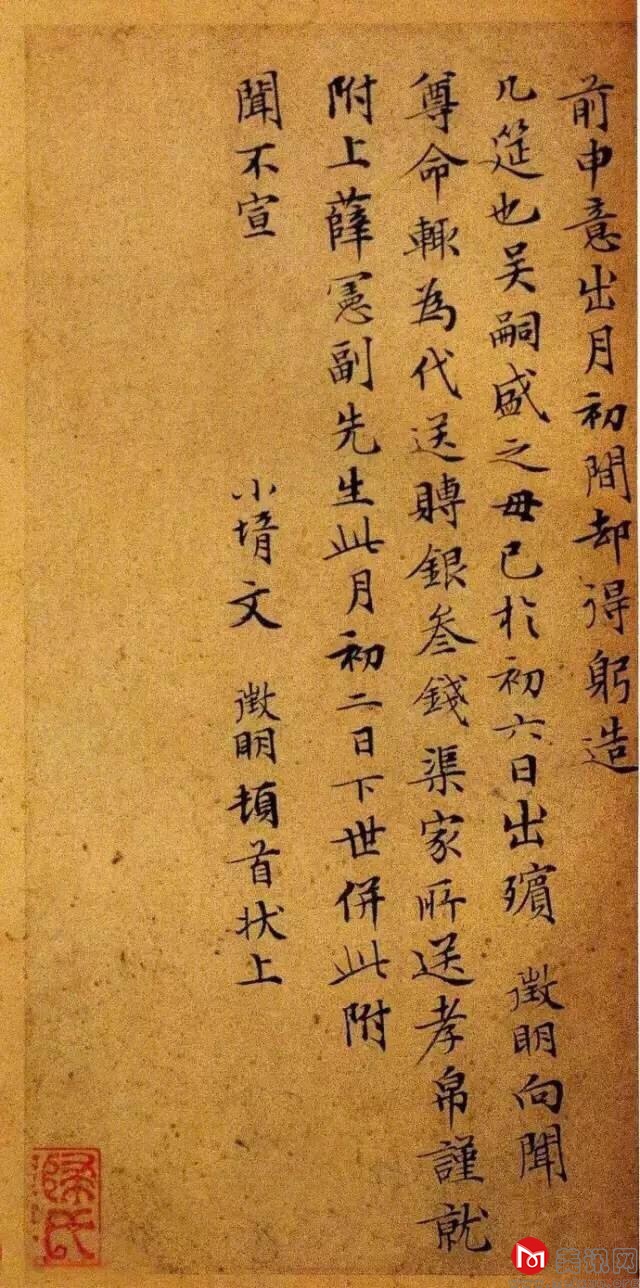 前申意出月初間却得躬造
几筵也吴嗣盛之母已於初六日出殯徵明向聞
尊命輒為代送賻銀叁錢渠家所送孝帛謹就
附上薛憲副先生此月初二日下世併此附
聞不宣
小壻文徵明頓首狀上